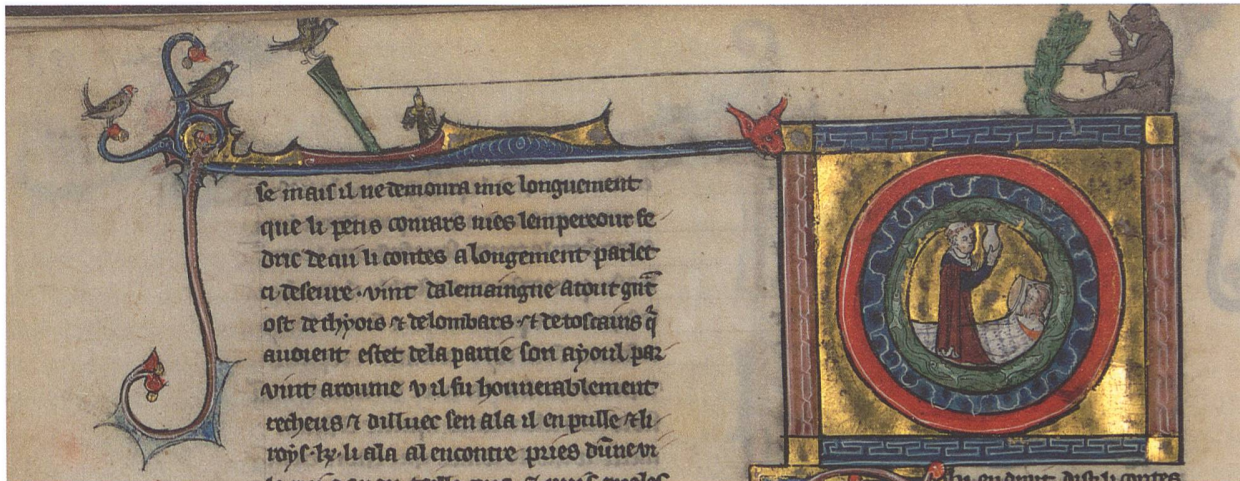 se mais il ne demoura mie longuement
que li petis conrars nies lempereour fe
dric de qui li contes a longement parlet
ci deseure . vint dalemaingne a tout gnt
ost de thyois ⁊ de lombars ⁊ de toscains q̃
auoient estet de la partie son ayoul par
vint a roume v il fu honnerablement
recheus ⁊ dilluec sen ala il en puille ⁊ li
roys . k̃ . li ala al encontre pries dũne vi
li contes